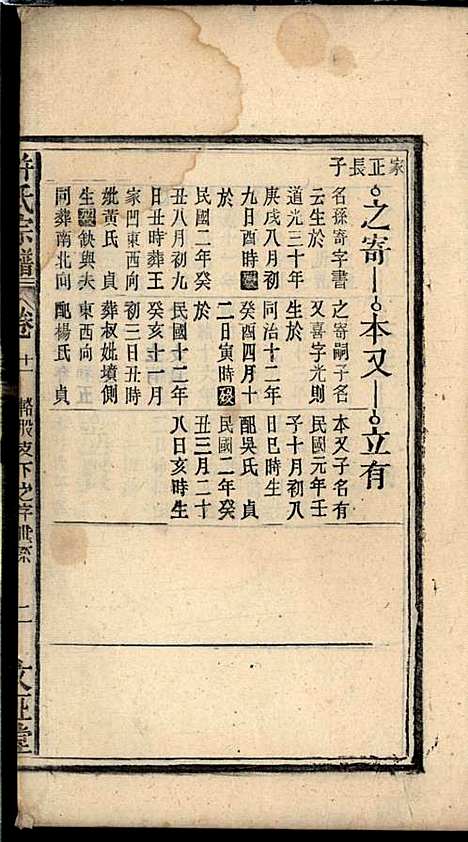 家正長子
之寄
本又
立有
名孫寄字書
云生於
道光三十年
庚戌八月初
九日酉時歿
於
民國二年癸
丑八月初九
日丑時葬王
家門東西向
妣黃氏 貞
生歿缺與夫
同葬南北向
之寄嗣子名
又喜字光則
生於
同治十二年
癸酉四月十
二日寅時歿
於
民國十二年
癸亥十一月
初三日丑時
葬叔妣墳側
東西向
配楊氏 貞
本又子名有
民國元年壬
子十月初八
日巳時生
配吳氏 貞
民國二年癸
丑三月二十
八日亥時生
許氏宗譜 卷十一 股支下之字世系 二